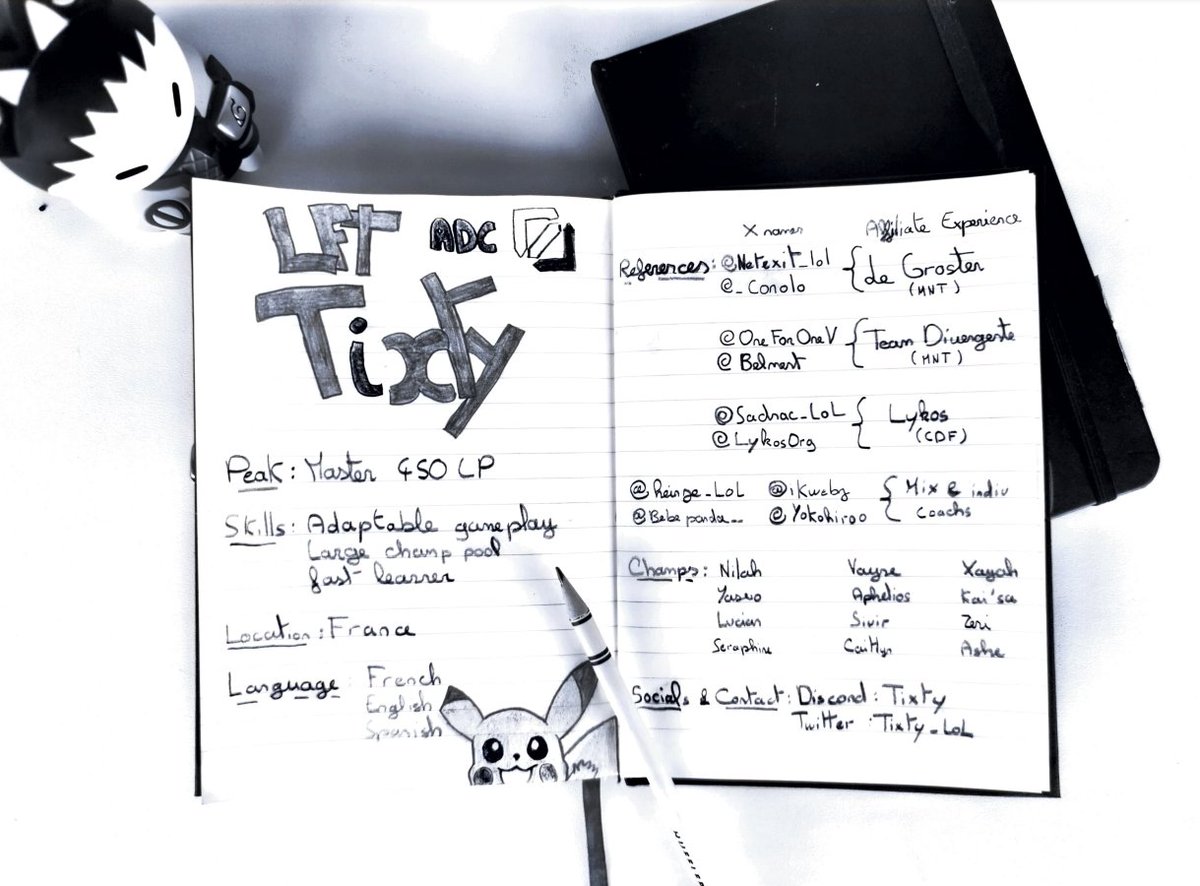 LFT ADC
Tixty
Peak : Master 450 LP
Skills : Adaptable gameplay
Large champ pool
fast learner
Location : France
Language : French
English
Spanish
X names Affiliate Experience
References : @Netexit_lol
@_Conolo
de Groster
(MNT)
@OneForOneV
@Belmert
Team Divergente
(MNT)
@Sadrac_LoL
@LykosOrg
Lykos
(CDF)
@Reinze_LoL @iKwebz
@Bebe panda__ @Yokohiroo
Mix & indiv
Coachs
Champs : Nilah Vayne Xayah
Yasuo Aphelios Kai'sa
Lucian Sivir Zeri
Seraphine Caitlyn Ashe
Socials & Contact : Discord : Tixty
Twitter : Tixty_LoL